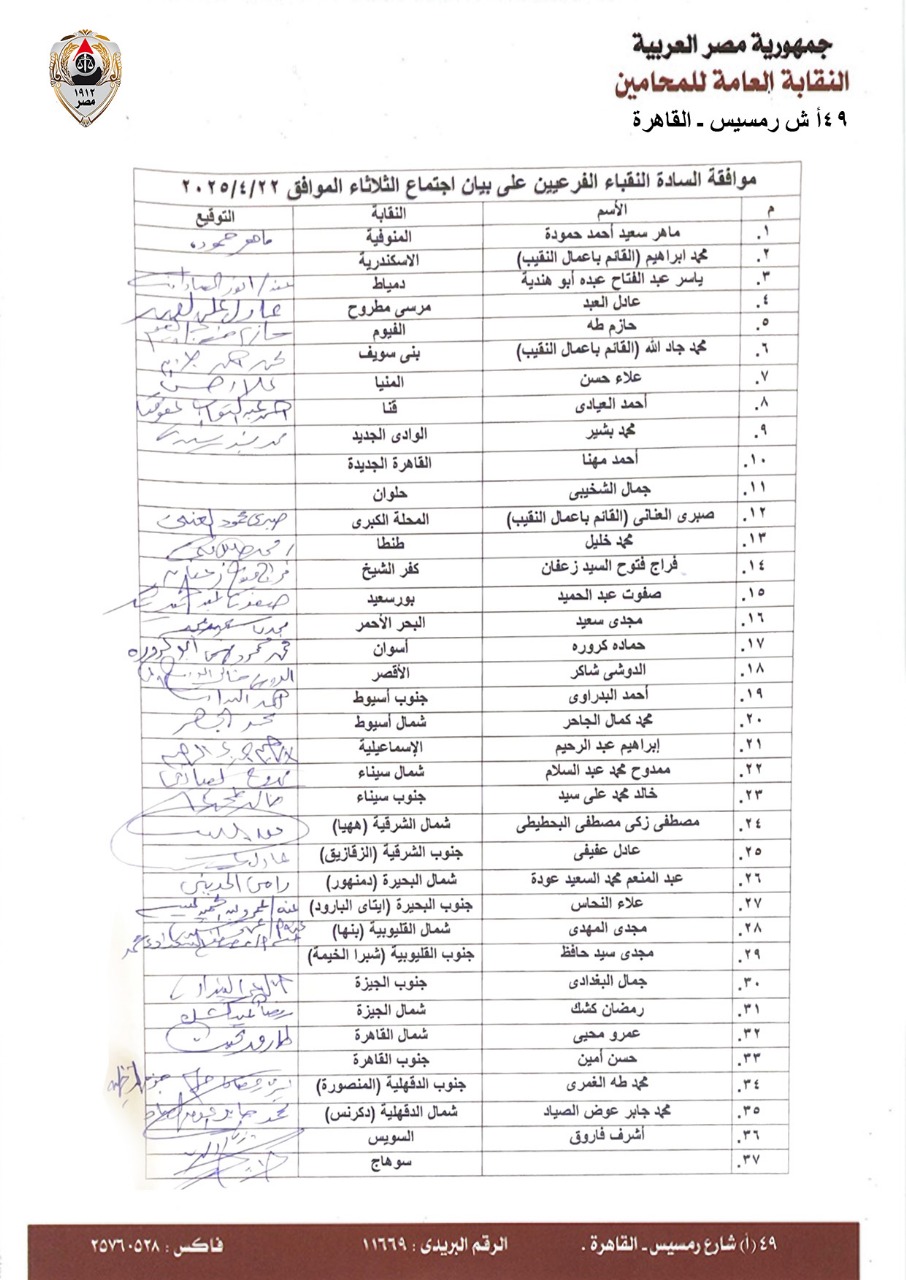 جمهورية مصر العربية
النقابة العامة للمحامين
٤٩أ ش رمسيس ـ القاهرة
١٩١٢
مصر
موافقة السادة النقباء الفرعيين على بيان اجتماع الثلاثاء الموافق ٢٠٢٥/٤/٢٢
م الأسم النقابة التوقيع
.١ ماهر سعيد أحمد حمودة المنوفية ماهر حموده
.٢ محمد ابراهيم (القائم باعمال النقيب) الاسكندرية
.٣ ياسر عبد الفتاح عبده أبو هندية دمياط
.٤ عادل العبد مرسى مطروح
.٥ حازم طه الفيوم
.٦ محمد جاد الله (القائم باعمال النقيب) بنى سويف
.٧ علاء حسن المنيا علاء حسن
.٨ أحمد العيادى قنا
.٩ محمد بشير الوادى الجديد
.١٠ أحمد مهنا القاهرة الجديدة
.١١ جمال الشخيبى حلوان
.١٢ صبرى العنانى (القائم باعمال النقيب) المحلة الكبرى صبرى محمود
.١٣ محمد خليل طنطا
.١٤ فراج فتوح السيد زعفان كفر الشيخ
.١٥ صفوت عبد الحميد بورسعيد
.١٦ مجدى سعيد البحر الأحمر
.١٧ حماده كروره أسوان
.١٨ الدوشى شاكر الأقصر
.١٩ أحمد البدراوى جنوب أسيوط
.٢٠ محمد كمال الجاحر شمال أسيوط
.٢١ إبراهيم عبد الرحيم الإسماعيلية
.٢٢ ممدوح محمد عبد السلام شمال سيناء
.٢٣ خالد محمد على سيد جنوب سيناء
.٢٤ مصطفى زكى مصطفى البحطيطى شمال الشرقية (ههيا)
.٢٥ عادل عفيفى جنوب الشرقية (الزقازيق)
.٢٦ عبد المنعم محمد السعيد عودة شمال البحيرة (دمنهور)
.٢٧ علاء النحاس جنوب البحيرة (ايتاى البارود)
.٢٨ مجدى المهدى شمال القليوبية (بنها)
.٢٩ مجدى سيد حافظ جنوب القليوبية (شبرا الخيمة)
.٣٠ جمال البغدادى جنوب الجيزة
.٣١ رمضان كشك شمال الجيزة
.٣٢ عمرو محيى شمال القاهرة
.٣٣ حسن أمين جنوب القاهرة
.٣٤ محمد طه الغمرى جنوب الدقهلية (المنصورة)
.٣٥ محمد جابر عوض الصياد شمال الدقهلية (دكرنس)
.٣٦ أشرف فاروق السويس
.٣٧ سوهاج
٤٩ (أ) شارع رمسيس ـ القاهرة . الرقم البريدى : ١١٦٦٩ فاكس : ٢٥٧٦٠٥٢٨